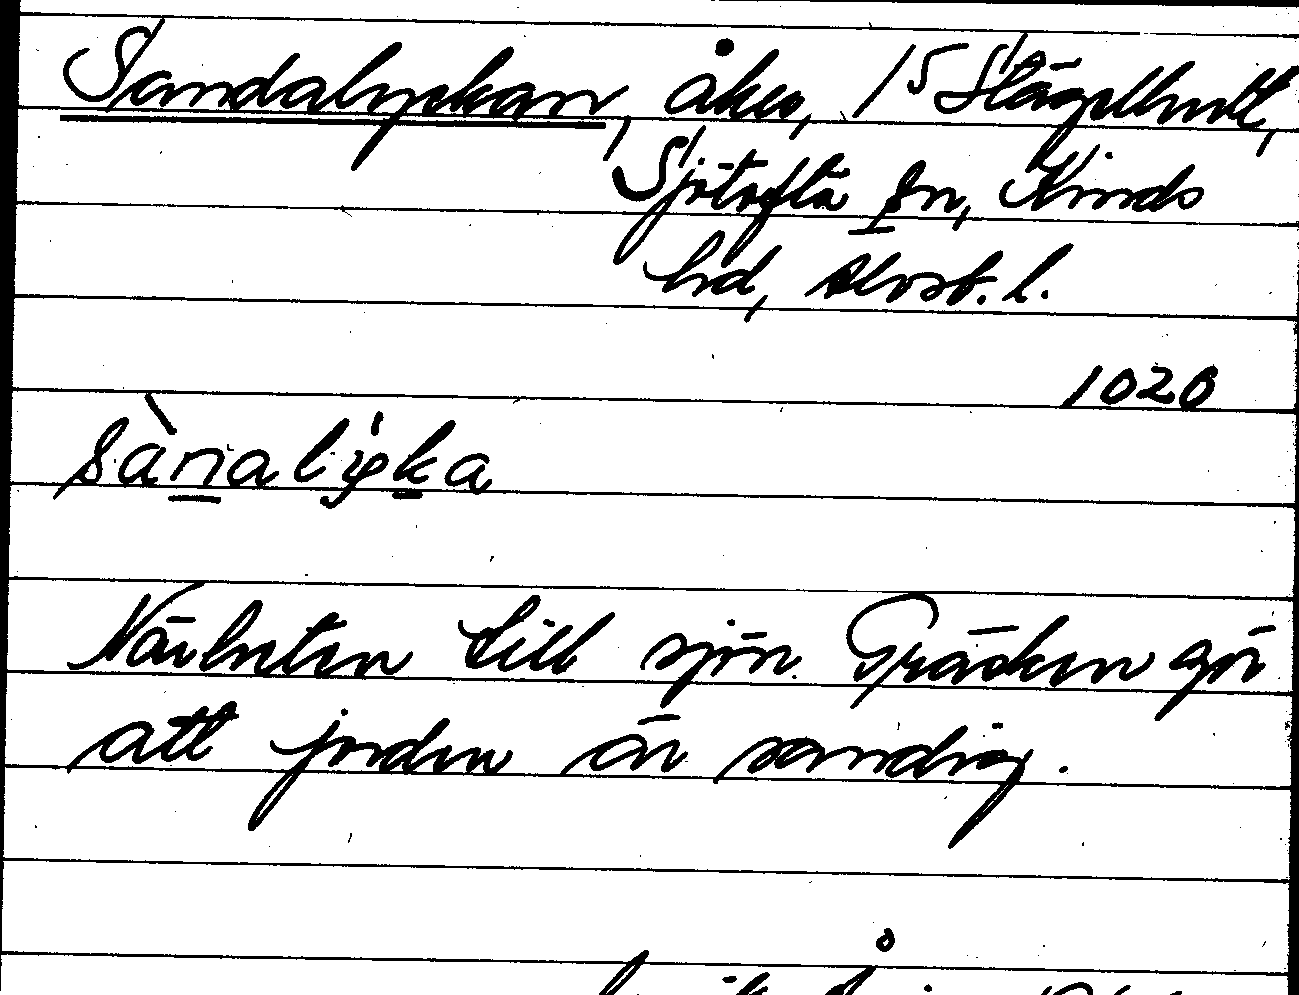 Sandalyckan, åker, 15 Stägelhult,
Sjötofta sn, Kinds
hd, Älvsb. l.
1020
Närheten till sjön Gräcken gör
att jorden är sandig.